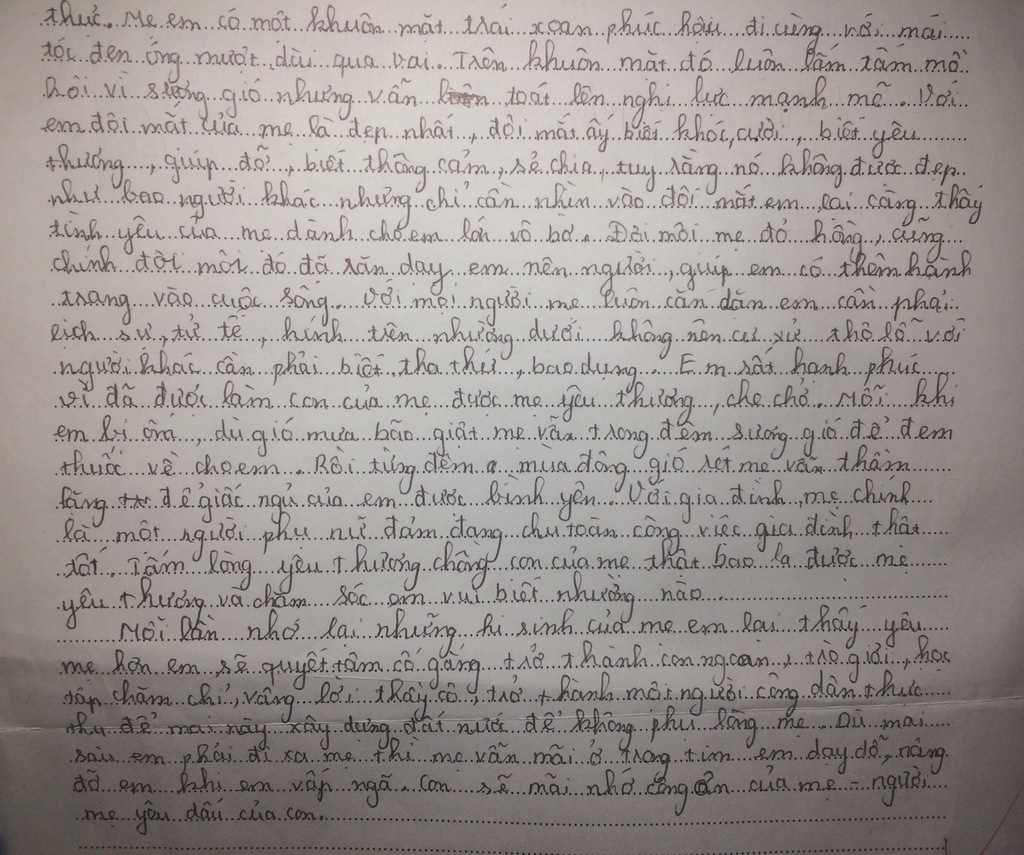 thức. Mẹ em có một khuôn mặt trái xoan phúc hậu đi cùng với mái
tóc đen óng mượt, dài qua vai. Trên khuôn mặt đó luôn lấm tấm mồ
hôi vì sương gió nhưng vẫn toát lên nghị lực mạnh mẽ. Với
em đôi mắt của mẹ là đẹp nhất, đôi mắt ấy biết khóc, cười, biết yêu
thương, giúp đỡ, biết thông cảm, sẻ chia, tuy rằng nó không được đẹp
như bao người khác nhưng chỉ cần nhìn vào đôi mắt em lại càng thấy
tình yêu của mẹ dành cho em lớn vô bờ. Đôi môi mẹ đỏ hồng, cũng
chính đôi môi đó đã răn dạy em nên người, giúp em có thêm hành
trang vào cuộc sống. Với mọi người mẹ luôn căn dặn em cần phải
lịch sự, tử tế, kính trên nhường dưới không nên cư xử thô lỗ với
người khác cần phải biết tha thứ, bao dung. Em rất hạnh phúc
vì đã được làm con của mẹ được mẹ yêu thương, che chở. Mỗi khi
em bị ốm, dù gió mưa bão giật mẹ vẫn trong đêm sương gió để đem
thuốc về cho em. Rồi từng đêm mùa đông gió rét mẹ vẫn thầm
lặng để giấc ngủ của em được bình yên. Với gia đình, mẹ chính
là một người phụ nữ đảm đang chu toàn công việc gia đình thật
tốt. Tấm lòng yêu thương chồng con của mẹ thật bao la được mẹ
yêu thương và chăm sóc em vui biết nhường nào
Mỗi lần nhớ lại những hi sinh của mẹ em lại thấy yêu
mẹ hơn em sẽ quyết tâm cố gắng trở thành con ngoan, trò giỏi, học
tập chăm chỉ, vâng lời thầy cô, trở thành một người công dân thực
thụ để mai này xây dựng đất nước để không phụ lòng mẹ. Dù mai
sau em phải đi xa mẹ thì mẹ vẫn mãi ở trong tim em dạy dỗ, nâng
đỡ em khi em vấp ngã. Con sẽ mãi nhớ công ơn của mẹ - người
mẹ yêu dấu của con.